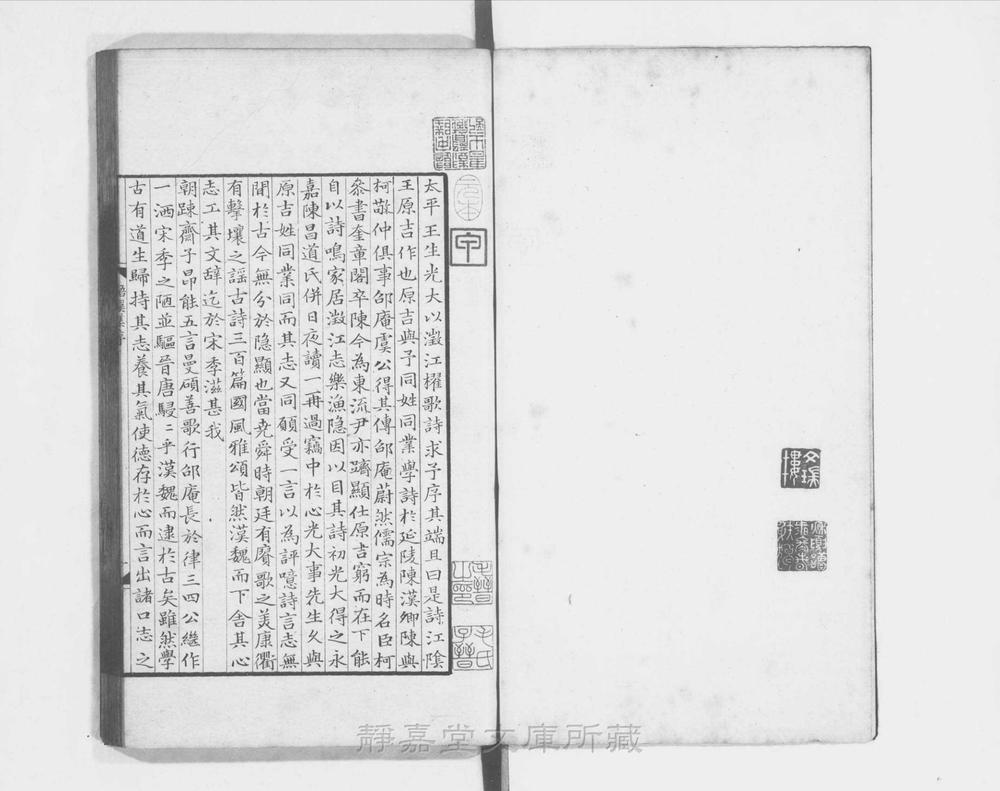 太平王生光大以澂江櫂歌詩求予序其端且曰是詩江陰
王原吉作也原吉與予同姓同業學詩於延陵陳漢卿陳與
柯敬仲俱事邵庵虞公得其傳邵庵蔚然儒宗為時名臣柯
叅書奎章閣卒陳今為東流尹亦躋顯仕原吉窮而在下能
自以詩鳴家居澂江志樂漁隐因以目其詩初光大得之永
嘉陳昌道氏併日夜讀一再過竊中扵心光大事先生久與
原吉姓同業同而其志又同願受一言以為評噫詩言志無
間扵古今無分於隐顯也當尭舜時朝廷有賡歌之美康衢
有擊壤之謡古詩三百篇國風雅頌皆然漢魏而下舍其心
志工其文辞迄於宋季滋甚我
朝踈齋子昂能五言曼碩善歌行邵庵長於律三四公継作
一洒宋季之陋並驅晉唐駸〻乎漢魏而逮於古矣雖然學
古有道生歸持其志養其氣使德存扵心而言出諸口志之
元本
毛晉
毛氏子晉
靜嘉堂文庫所藏